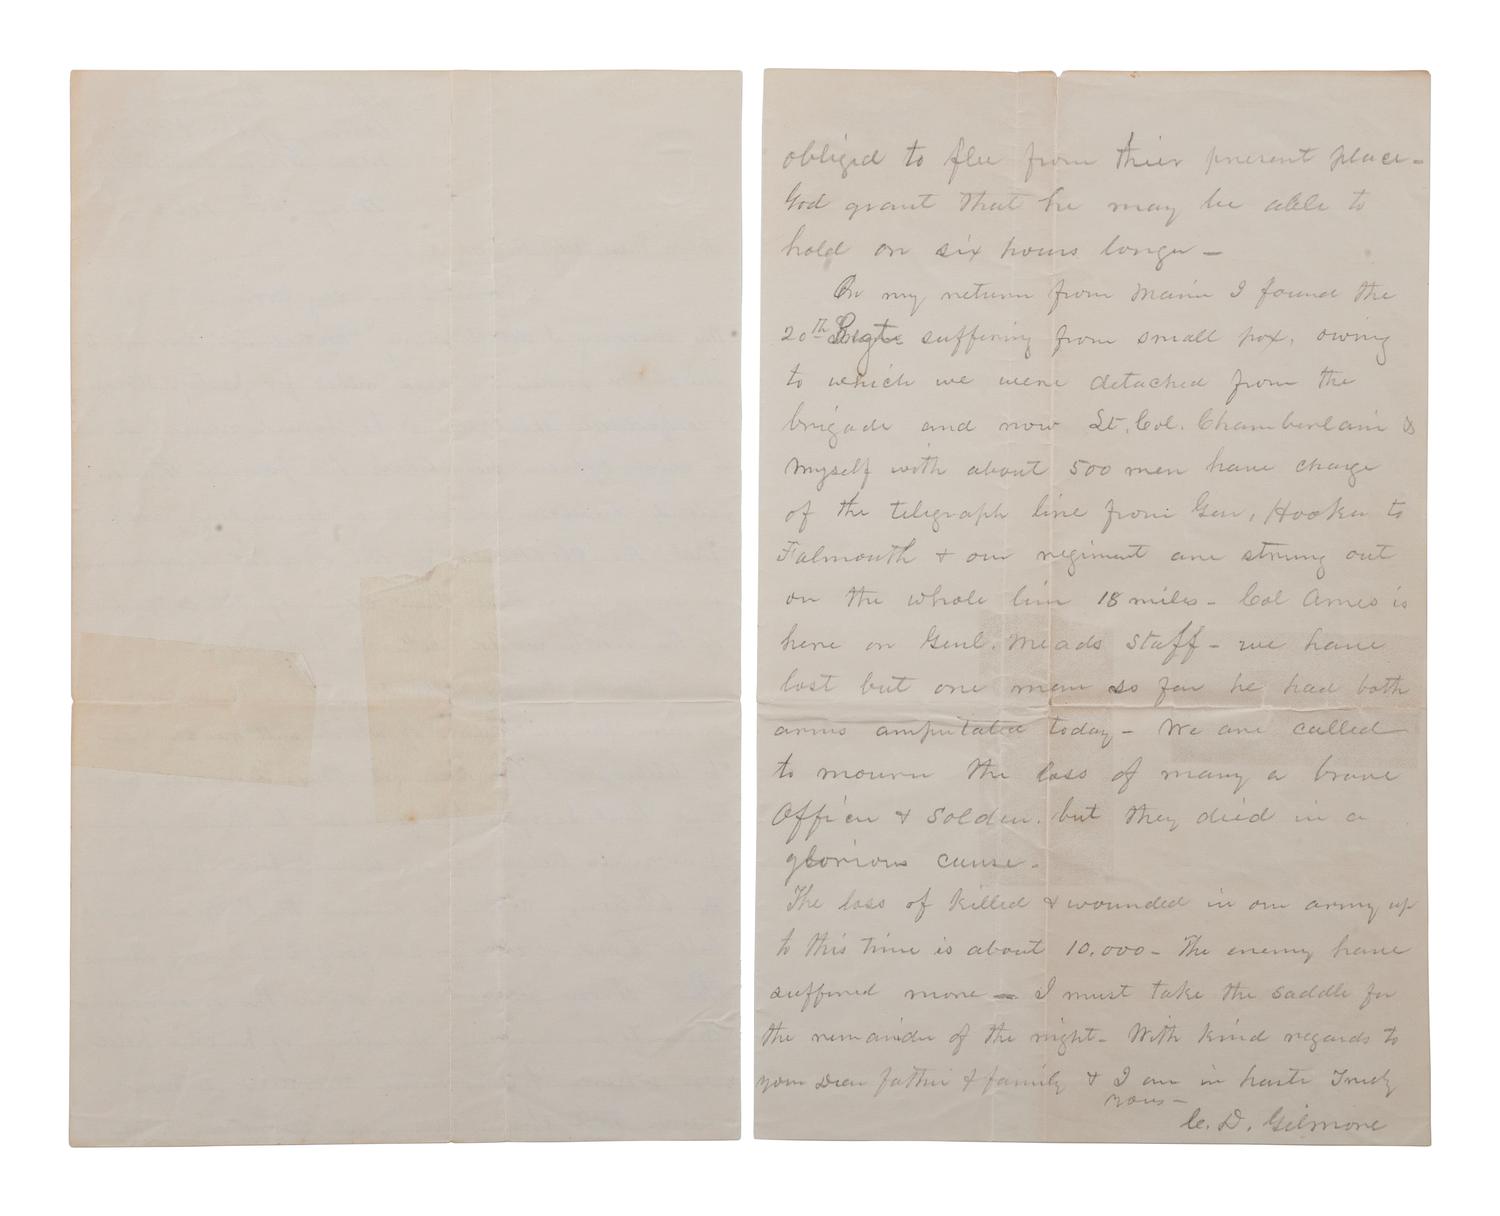 obliged to flee from thier present place-
God grant that he may be able to
hold on six hours longer -
On my return from Maine I found the
20th Regt suffering from small pox, owing
to which we were detached from the
brigade and now Lt. Col. Chamberlain &
myself with about 500 men have charge
of the telegraph line from Gen, Hooker to
Falmouth & our regiment are strung out
on the whole line 18 miles - Col Ames is
here on Genl. Meads staff - we have
lost but one man so far he had both
arms amputated today - We are called
to mourn the loss of many a brave
Officer & Soldier. but they died in a
glorious cause -
The loss of killed & wounded in our army up
to this time is about 10,000 - The enemy have
suffered more - I must take the saddle for
the remainder of the night - With kind regards to
your Dear father & family & I am in haste Truly
yours -
C. D. Gilmore